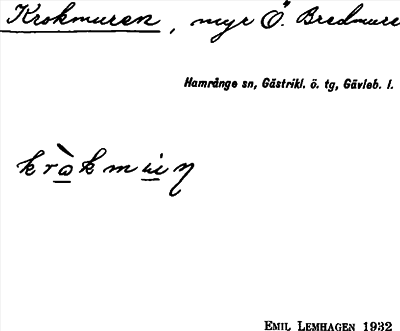 Krokmuren, myr Ö. Bredmure
Hamrånge sn, Gästrikl. ö. tg, Gävleb. l.
EMIL LEMHAGEN 1932